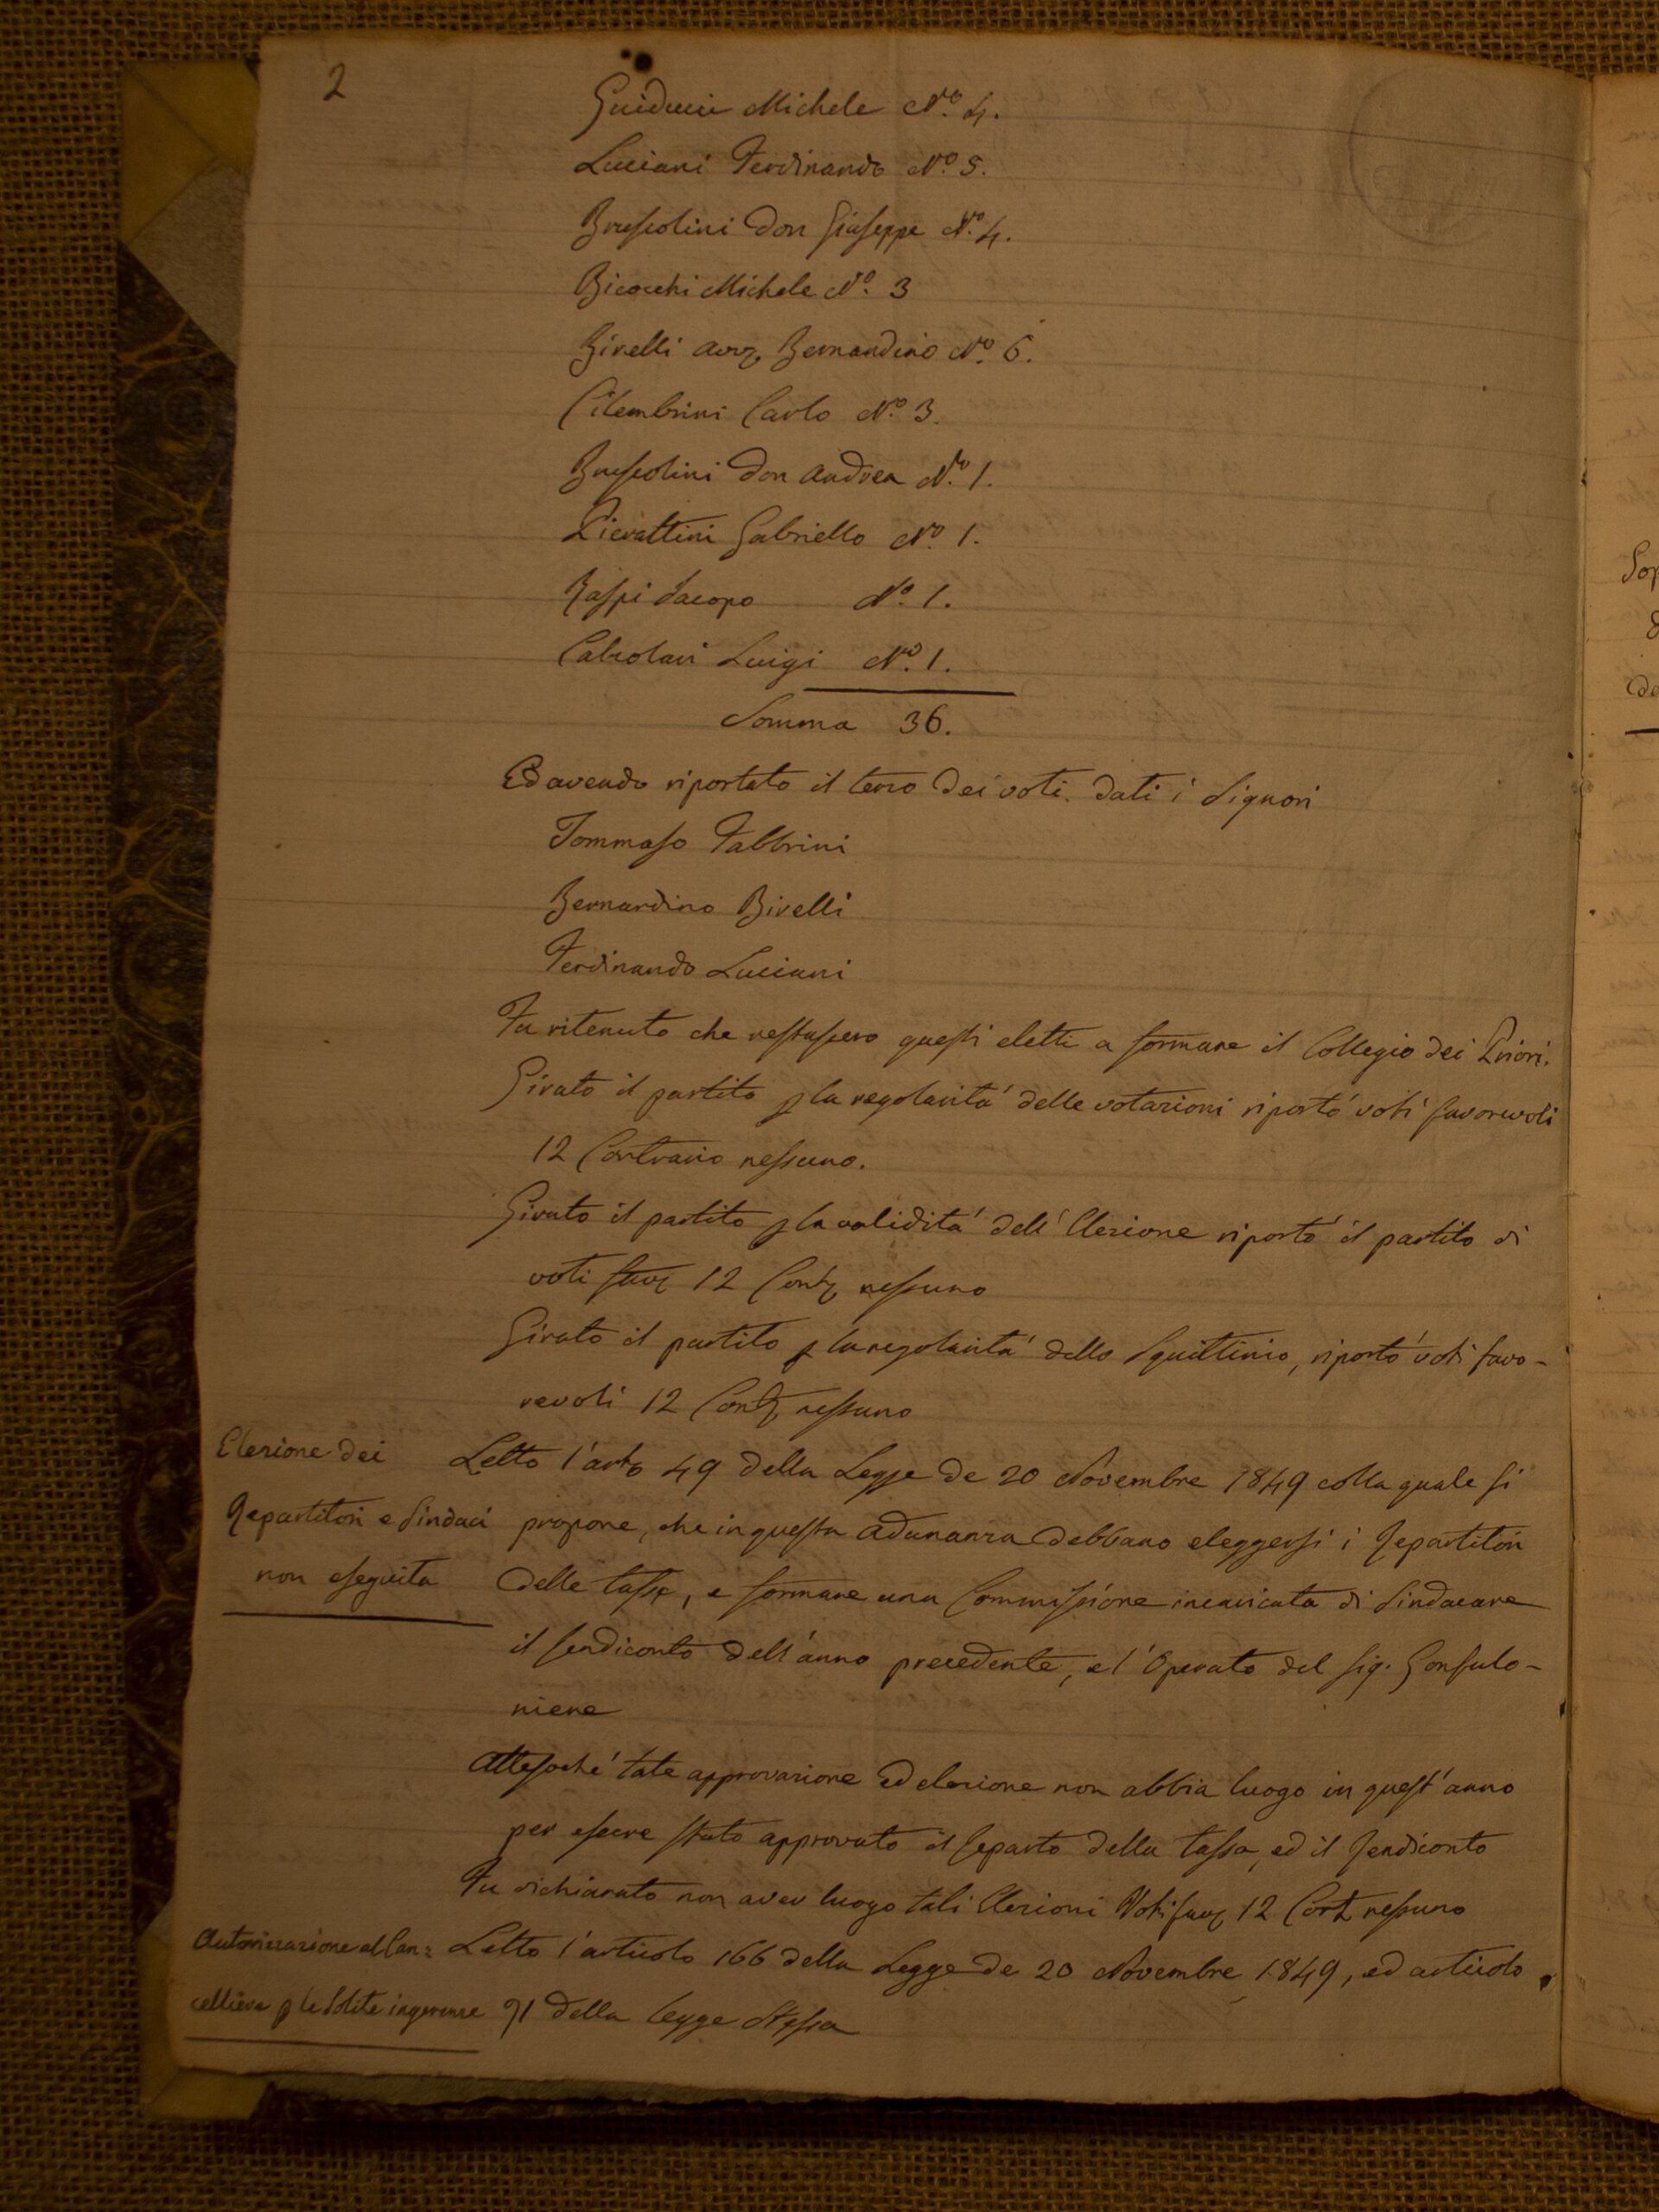 2
Guiducci Michele N.º 4.
Luciani Ferdinando N.º 5.
Bruscolini Don Giuseppe N.º 4.
Bicocchi Michele N.º 3
Birelli Avv. Bernardino N.º 6.
Cilembrini Carlo N.º 3.
Bruscolini Don Andrea N.º 1.
Pierattini Gabriello N.º 1.
Raspi Jacopo N.º 1.
Calzolari Luigi N.º 1.
Somma 36.
Ed avendo riportato il terzo dei voti dati i Signori
Tommaso Fabbrini
Bernardino Birelli
Ferdinando Luciani
Fu ritenuto che restassero questi eletti a formare il Collegio dei Priori.
Girato il partito p la regolarità delle votazioni riportò voti favorevoli
12 Contrario nessuno.
Girato il partito p la validità dell'Elezione riportò il partito di
voti fav. 12 Cont. nessuno
Girato il partito p la regolarità dello Squittinio, riportò voti favo-
revoli 12 Cont. nessuno
Elezione dei
Repartitori e Sindaci
non eseguita
Letto l'arto 49 della Legge de 20 Novembre 1849 colla quale si
propone, che in questa Adunanza debbano eleggersi i Repartitori
delle tasse, e formare una Commissione incaricata di Sindacare
il rendiconto dell'anno precedente, e l'Operato del Sig. Gonfalo-
niere
Attesochè tale approvazione ed elezione non abbia luogo in quest'anno
per essere stato approvato il reparto della tassa, ed il Rendiconto
Fu dichiarato non aver luogo tali Elezioni Voti fav. 12 Cont. nessuno
Autorizzazione al Can=
celliere p le solite ingerenze
Letto l'articolo 166 della Legge de 20 Novembre 1849, ed articolo
71 della legge Stessa